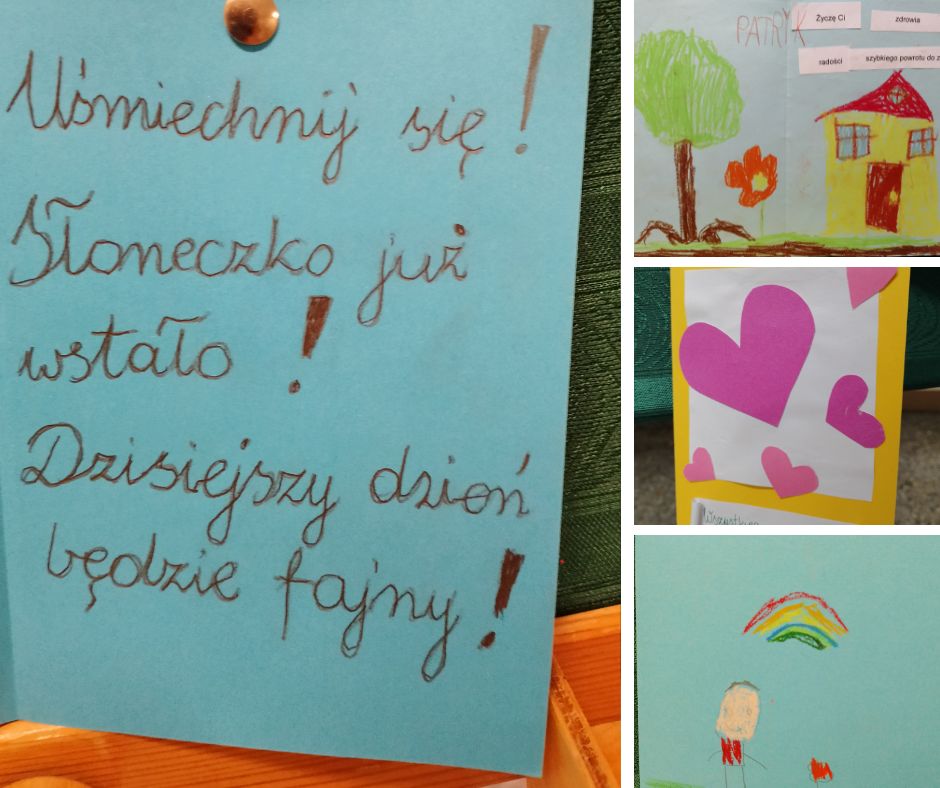 Uśmiechnij się!
Słoneczko już
wstało!
Dzisiejszy dzień
będzie fajny!
PATRYK
Życzę Ci
zdrowia
radości
szybkiego powrotu do